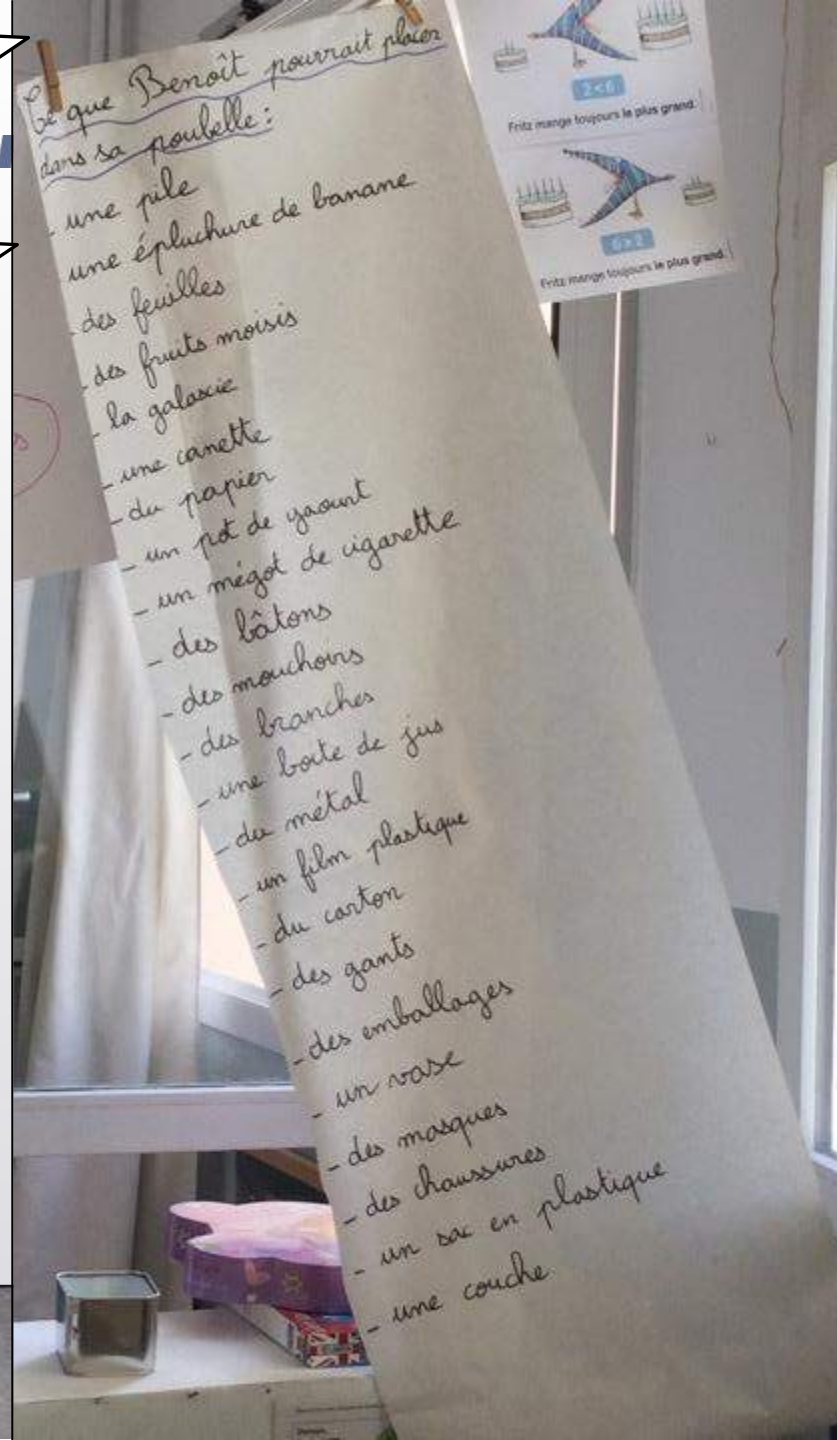 Ce que Benoît pourrait placer
dans sa poubelle :
- une pile
- une épluchure de banane
- des feuilles
- des fruits moisis
- la galaxie
- une canette
- du papier
- un pot de yaourt
- un mégot de cigarette
- des bâtons
- des mouchoirs
- des branches
- une boite de jus
- du métal
- un film plastique
- du carton
- des gants
- des emballages
- un vase
- des masques
- des chaussures
- un sac en plastique
- une couche
2<6
Fritz mange toujours le plus grand.
6>2
Fritz mange toujours le plus grand.